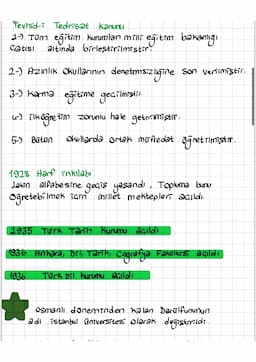 Tevhid-i Tedrisat Kanunu
1-) Tüm eğitim kurumları milli eğitim bakanlığı
çatısı altında birleştirilmiştir.
2-) Azınlık okullarının denetimsizliğine son verilmiştir.
3-) Karma eğitime geçilmiştir.
4-) İlköğretim zorunlu hale getirilmiştir.
5-) Bütün okullarda ortak müfredat öğretilmiştir.
1928 Harf inkılabı
Latin alfabesine geçiş yaşandı, Topluma bunu
öğretebilmek için millet mektepleri açıldı.
1935 Türk Tarih Kurumu açıldı
1936 Ankara, Dil, Tarih, Coğrafya Fakültesi açıldı
1936 Türk Dil Kurumu açıldı
Osmanlı döneminden kalan Darülfünunun
adı İstanbul üniversitesi olarak değişmiştir.